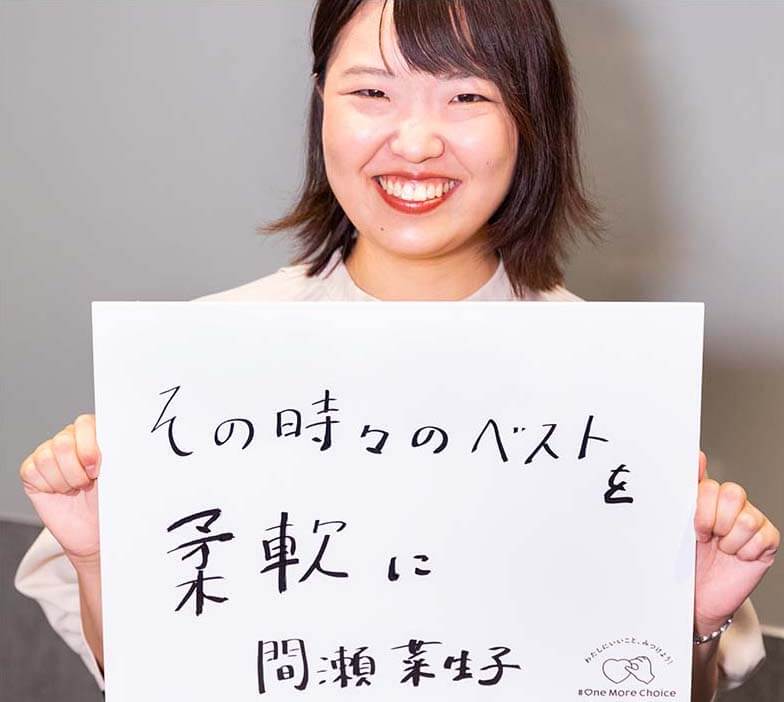 その時々のベスト
を
柔軟に
間瀬菜生子
わたしにいいこと、みつけよう!
#One More Choice